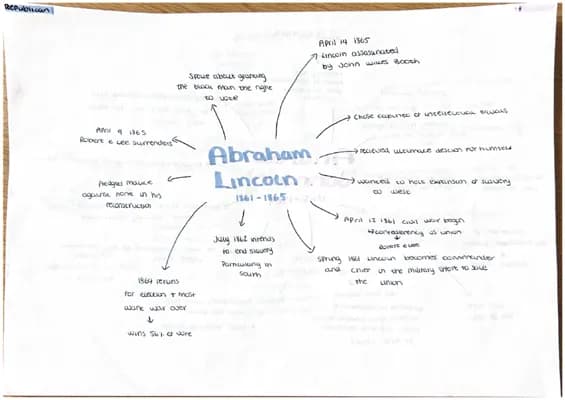 Republican
April 14 1865
Lincoln assassinated
by John Wilkes Booth
Spoke about granting
the black man the right
to vote
Chose cabinet of intellectual rivals
April 9 1865
Robert e Lee surrenders
Abraham
Lincoln
1861-1865
recieved ultimate decision for himself
Pledges malice
against none in his
reconstruction
wanted to halt expansion of slavery
to west
April 12 1861 civil war begin
confederacy vs union
July 1862 intends
to end slavery
in
south
Spring 1861 Lincoln becomes commander
and chief in the military effort to save
the union
1864 reruns
for election + most
want war over
wins 56% of vote